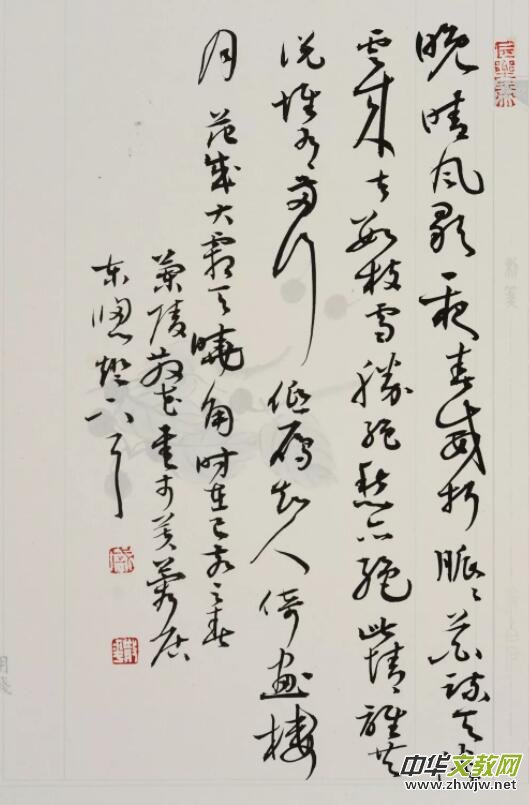 晚晴风歇一夜春威折脈〻花疏天淡
云来去数枝雪胜绝愁亦绝此情谁共
说惟有两行低雁知人倚画楼
月 范成大霜天晓角时在己亥之春
兰陵书于芙蓉居
东窗灯下
中华文教网
www.zhwjw.net